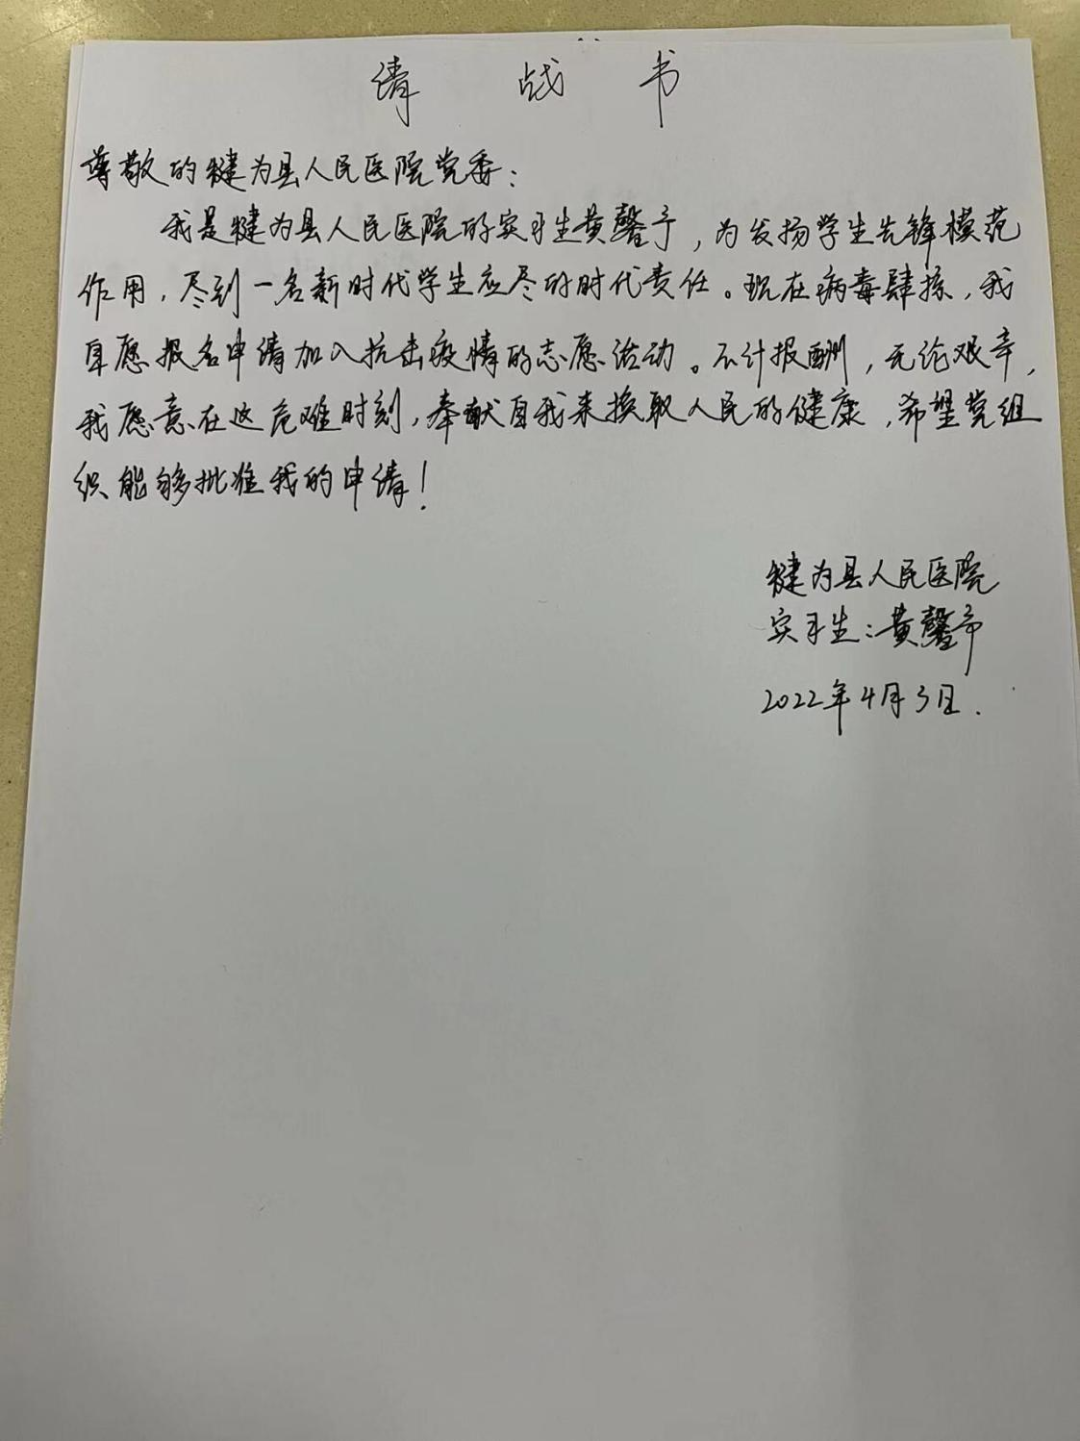 请战书
尊敬的犍为县人民医院党委：
我是犍为县人民医院的实习生黄馨予，为发扬学生先锋模范
作用，尽到一名新时代学生应尽的时代责任。现在病毒肆掠，我
自愿报名申请加入抗击疫情的志愿活动。不计报酬，无论艰辛，
我愿意在这危难时刻，奉献自我来换取人民的健康，希望党组
织能够批准我的申请！
犍为县人民医院
实习生：黄馨予
2022年4月3日.